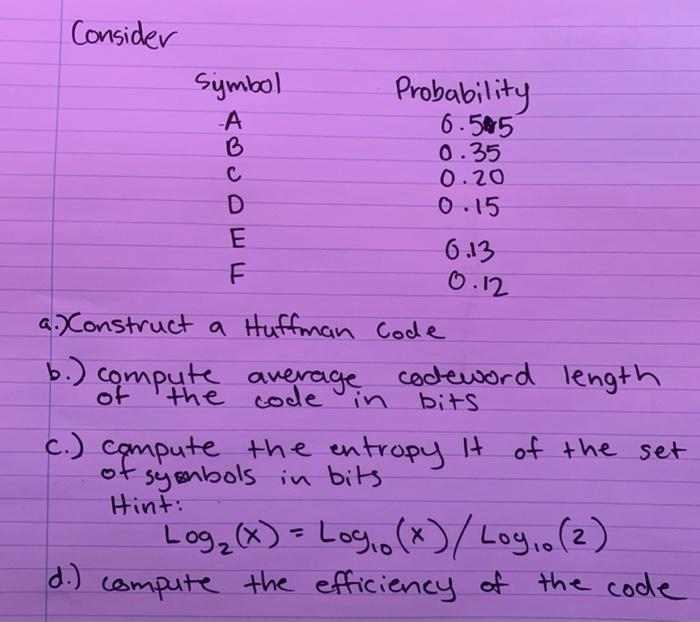 Consider
Symbol Probability
A
B 0.35
C 0.20
D 0.15
E 0.13
F 0.12
a.) Construct a Huffman Code
b.) compute average codeword length
of the code in bits
c.) compute the entropy H of the set
of symbols in bits
Hint:
Log₂(x) = Log₁₀(x)/Log₁₀(2)
d.) compute the efficiency of the code